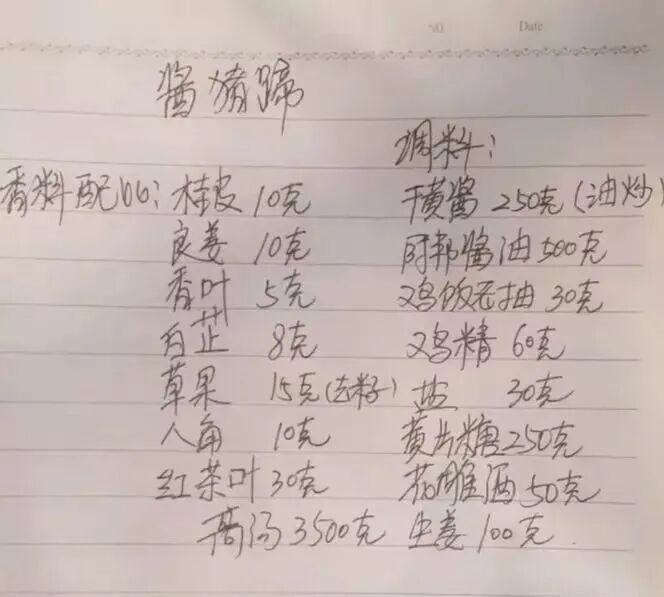 NO. Date
酱猪蹄
调料：
香料配比：桂皮 10克 干黄酱 250克（油炒）
良姜 10克 阿郎酱油 500克
香叶 5克 鸡饭老抽 30克
白芷 8克 鸡精 60克
草果 15克（去籽） 盐 30克
八角 10克 黄片糖 250克
红茶叶 30克 花雕酒 50克
高汤 3500克 生姜 100克